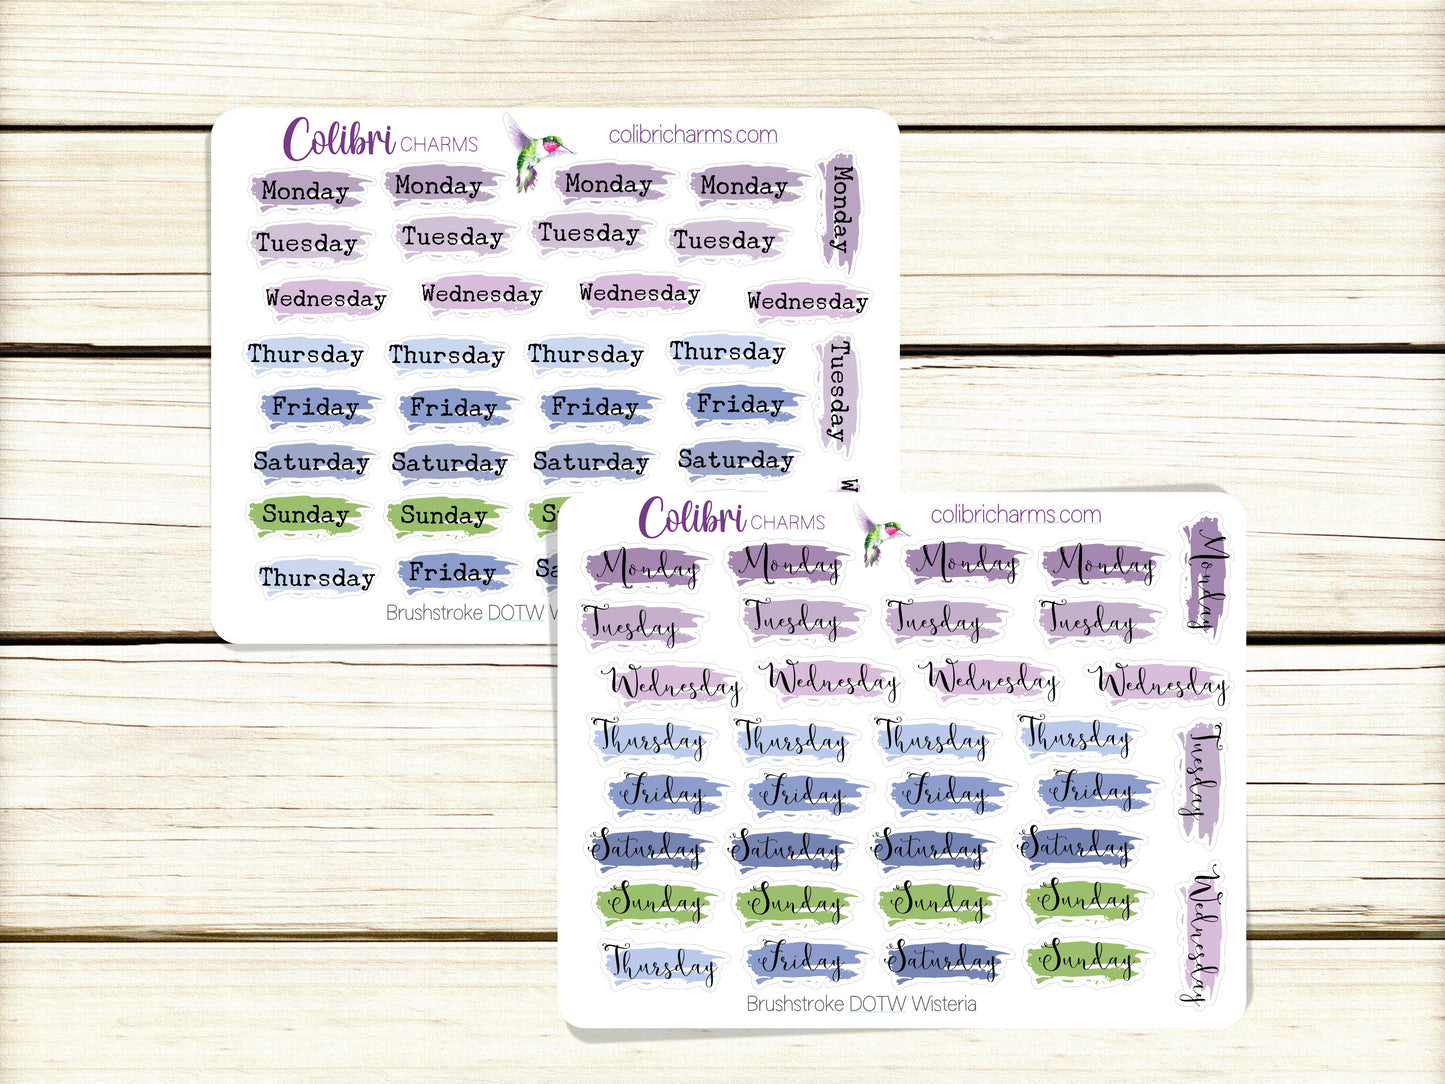 Colibri CHARMS
colibricharms.com
Monday Monday Monday Monday
Monday
Tuesday Tuesday Tuesday Tuesday
Wednesday Wednesday Wednesday Wednesday
Thursday Thursday Thursday Thursday
Tuesday
Friday Friday Friday Friday
Saturday Saturday Saturday Saturday
W
Sunday Sunday S
Thursday Friday Sa
Brushstroke DOTW W
Colibri CHARMS
colibricharms.com
Monday Monday Monday Monday
Monday
Tuesday Tuesday Tuesday Tuesday
Wednesday Wednesday Wednesday Wednesday
Thursday Thursday Thursday Thursday
Tuesday
Friday Friday Friday Friday
Saturday Saturday Saturday Saturday
Sunday Sunday Sunday Sunday
Wednesday
Thursday Friday Saturday Sunday
Brushstroke DOTW Wisteria